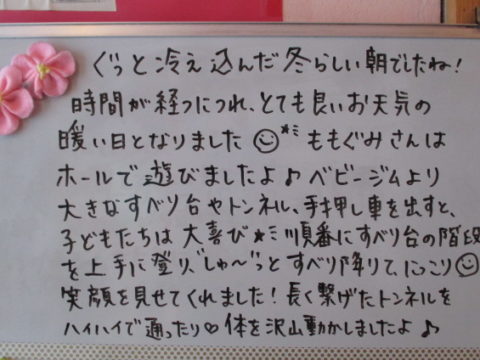 ぐっと冷え込んだ冬らしい朝でしたね!
時間が経つにつれ、とても良いお天気の
暖い日となりました☺*ミ ももぐみさんは
ホールで遊びましたよ♪ベビージムより
大きなすべり台やトンネル、手押し車を出すと、
子どもたちは大喜び*ミ順番にすべり台の階段
を上手に登り、"しゅ〜"っとすべり降りて、にっこり☺
笑顔を見せてくれました!長く繋げたトンネルを
ハイハイで通ったり♡体を沢山動かしましたよ♪